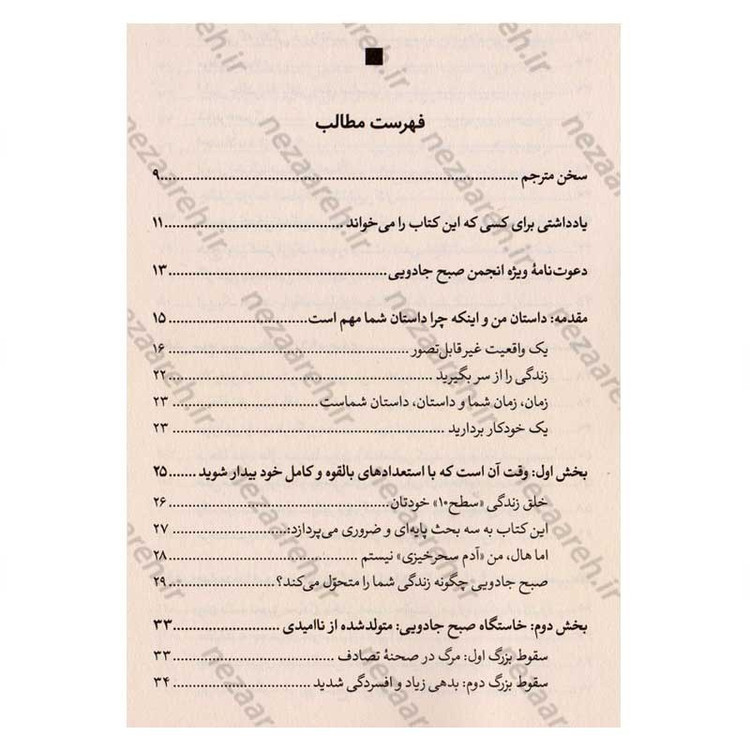 فهرست مطالب
سخن مترجم ........ ۹
یادداشتی برای کسی که این کتاب را می‌خواند ........ ۱۱
دعوت‌نامهٔ ویژه انجمن صبح جادویی ........ ۱۳
مقدمه: داستان من و اینکه چرا داستان شما مهم است ........ ۱۵
یک واقعیت غیرقابل‌تصور ........ ۱۶
زندگی را از سر بگیرید ........ ۲۲
زمان، زمان شما و داستان، داستان شماست ........ ۲۳
یک خودکار بردارید ........ ۲۳
بخش اول: وقت آن است که با استعدادهای بالقوه و کامل خود بیدار شوید ....... ۲۵
خلق زندگی «سطح۱۰» خودتان ........ ۲۶
این کتاب به سه بحث پایه‌ای و ضروری می‌پردازد: ........ ۲۷
اما هال، من «آدم سحرخیزی» نیستم ........ ۲۸
صبح جادویی چگونه زندگی شما را متحوّل می‌کند؟ ........ ۲۹
بخش دوم: خاستگاه صبح جادویی: متولدشده از ناامیدی ........ ۳۳
سقوط بزرگ اول: مرگ در صحنهٔ تصادف ........ ۳۳
سقوط بزرگ دوم: بدهی زیاد و افسردگی شدید ........ ۳۴
nezaareh.ir